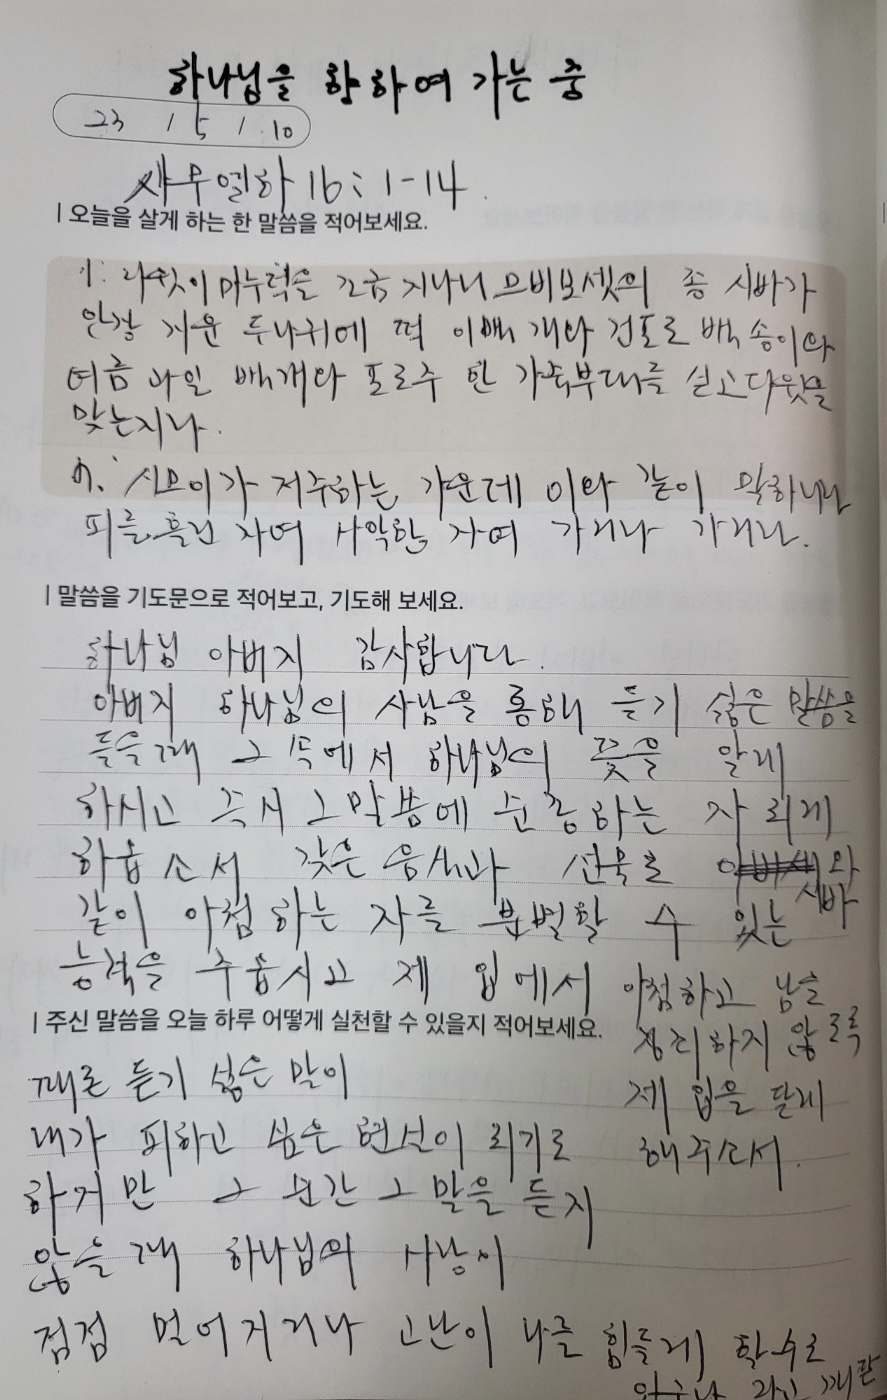 하나님을 향하여 가는 중
23 / 5 / 10
사무엘하 16:1-14
오늘을 살게 하는 한 말씀을 적어보세요.
1. 다윗이 마루턱을 조금 지나니 므비보셋의 종 시바가
안장 지운 두 나귀에 떡 이백 개와 건포도 백 송이와
여름 과일 백개와 포도주 한 가죽부대를 싣고 다윗을
맞는지라.
7. 시므이가 저주하는 가운데 이와 같이 말하니라
피를 흘린 자여 사악한 자여 가거라 가거라.
말씀을 기도문으로 적어보고, 기도해 보세요.
하나님 아버지 감사합니다.
아버지 하나님의 사람을 통해 듣기 싫은 말씀을
들을 때 그 속에서 하나님의 뜻을 알게
하시고 즉시 그 말씀에 순종하는 자 되게
하옵소서 갖은 음식과 선물로 시바와
같이 아첨하는 자를 분별할 수 있는
능력을 주옵시고 제 입에서 아첨하고 남을
정죄하지 않도록
제 입을 닫게
해주소서.
주신 말씀을 오늘 하루 어떻게 실천할 수 있을지 적어보세요.
때론 듣기 싫은 말이
내가 피하고 싶은 현실이 되기도
하지만 그 순간 그 말을 듣지
않을 때 하나님의 사랑이
점점 멀어지거나 고난이 나를 힘들게 할 수도